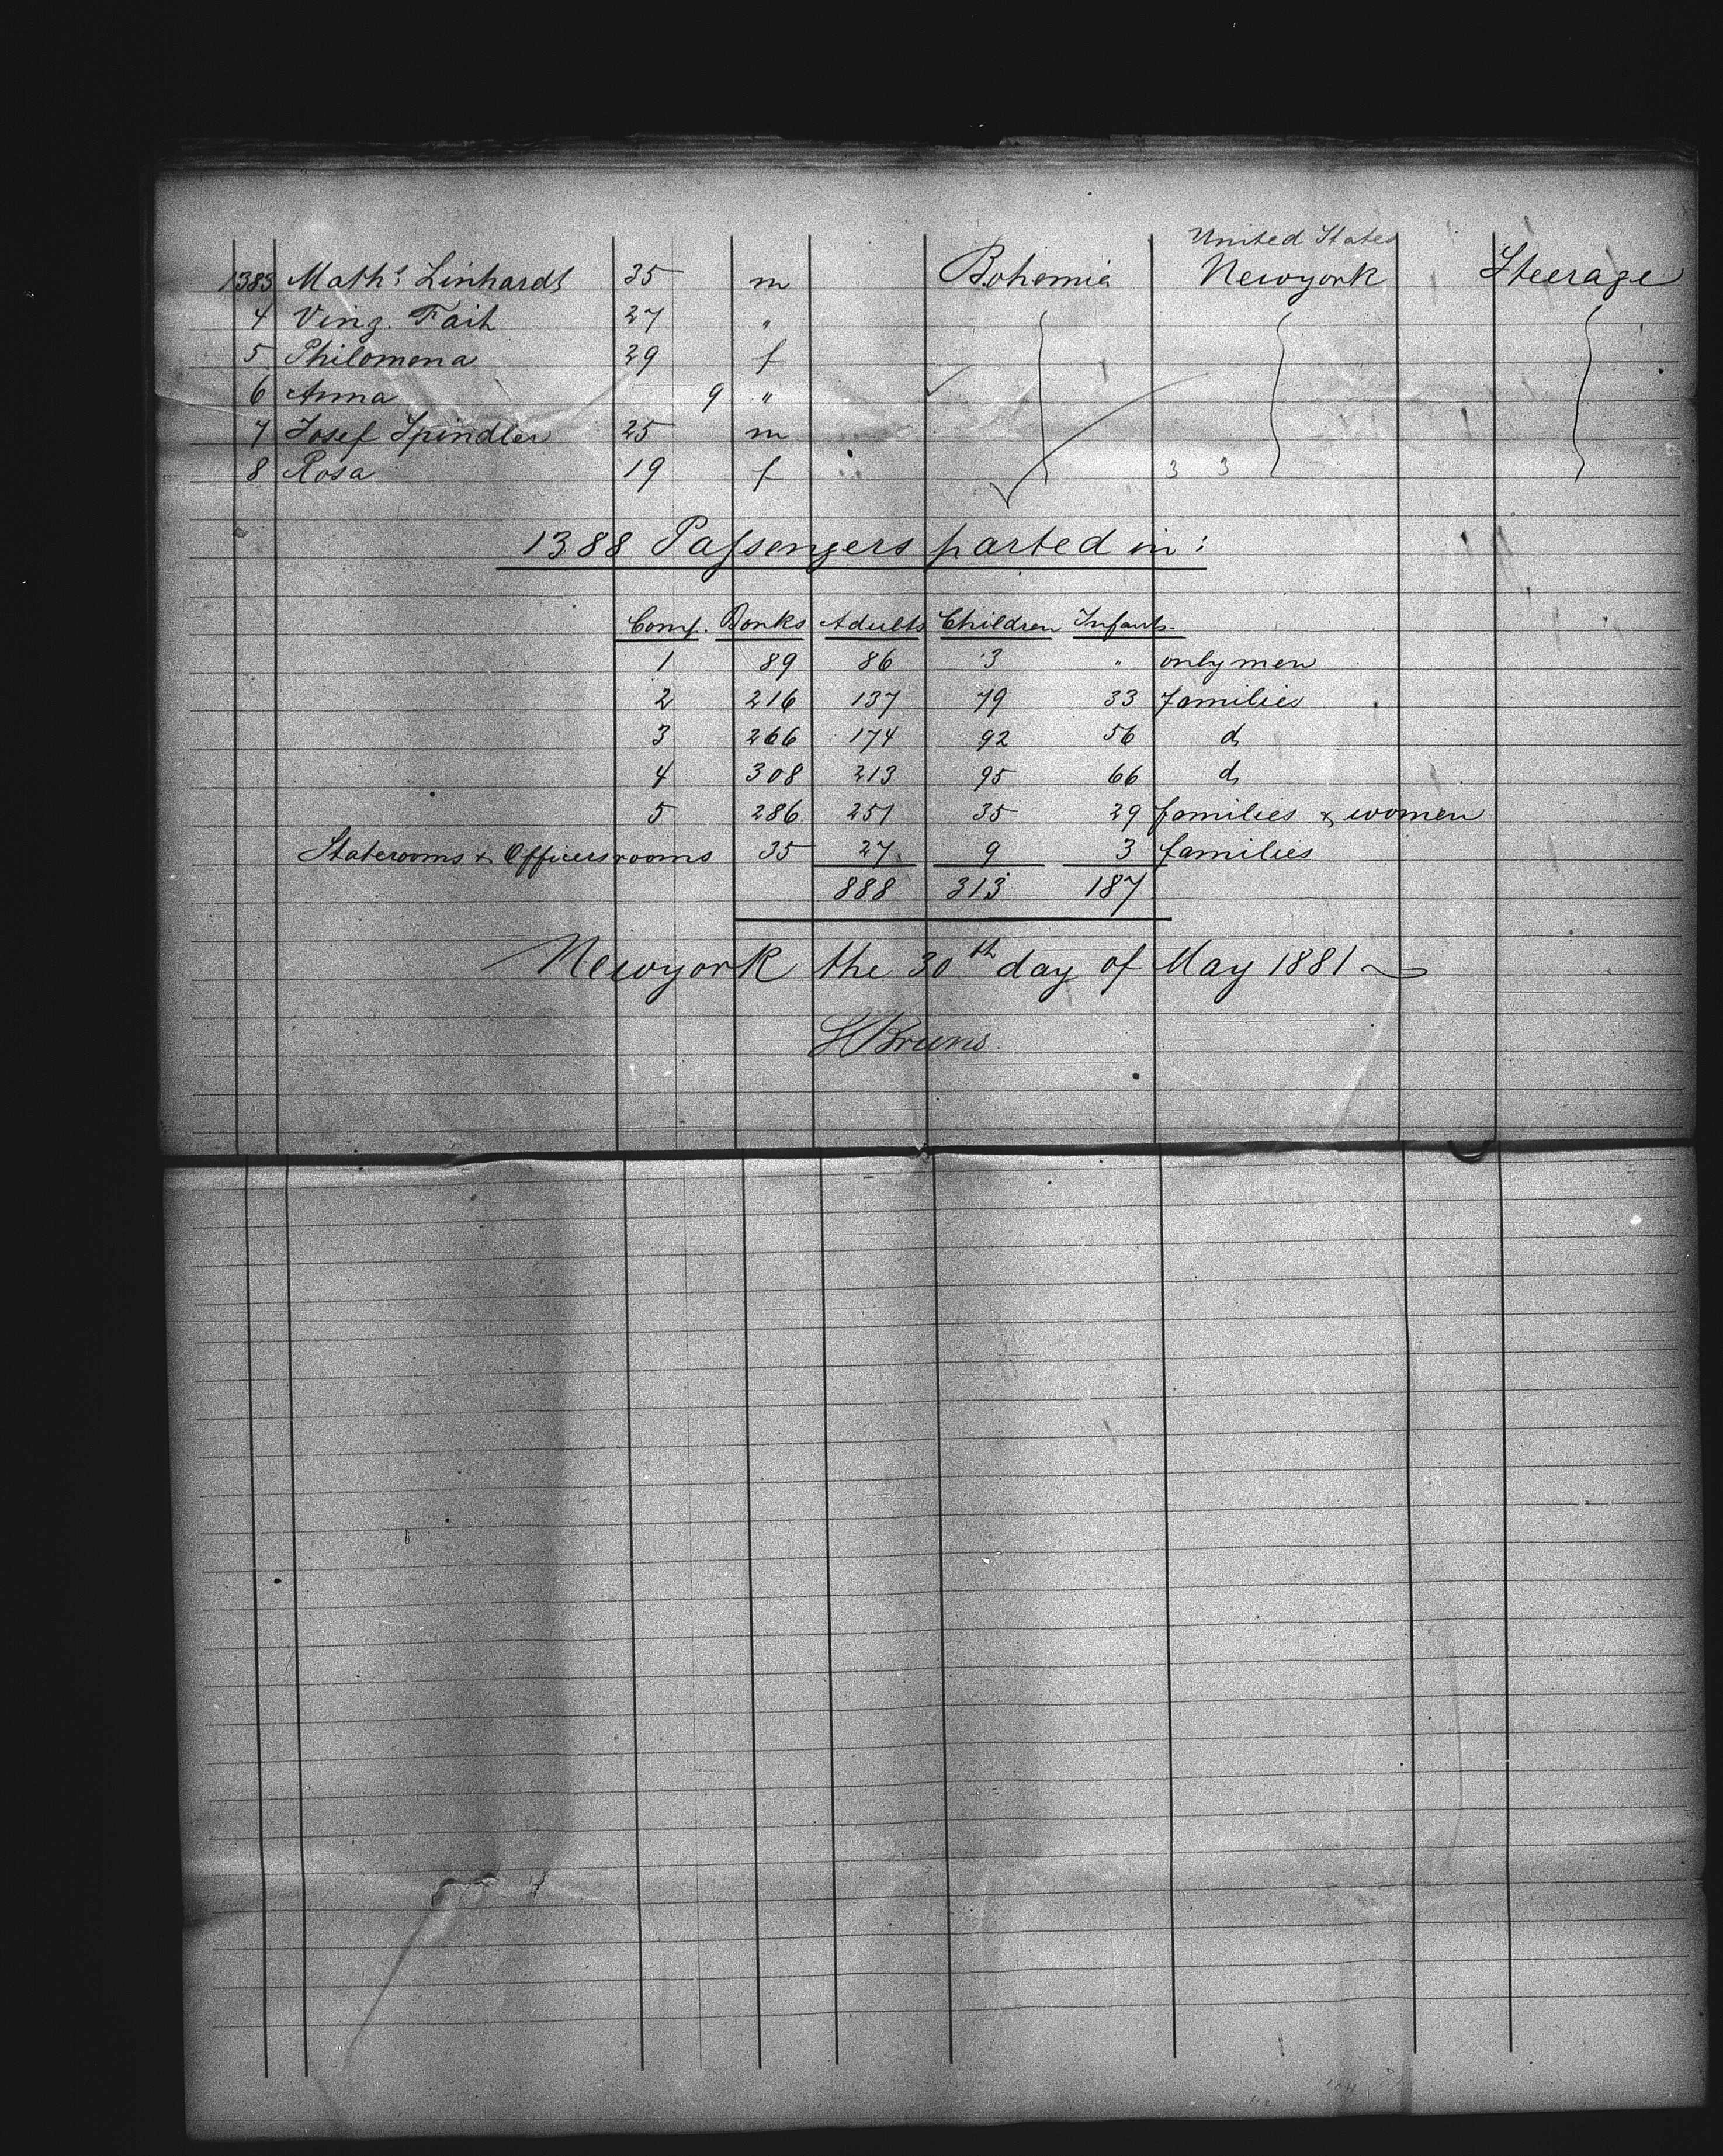 United States
1383 Math^s Linhardt 35 m Bohemia Newyork Steerage
4 Vinz. Fait 27 "
5 Philomena 29 f
6 Anna 9 "
7 Josef Spindler 25 m
8 Rosa 19 f 3 3
1388 Passengers parted in:
Comp. Bonks Adults Children Infants.
1 89 86 3 " only men
2 216 137 79 33 families
3 266 174 92 56 do
4 308 213 95 66 do
5 286 251 35 29 families & women
Staterooms & Officersrooms 35 27 9 3 families
888 313 187
Newyork the 30th day of May 1881
HBruns.